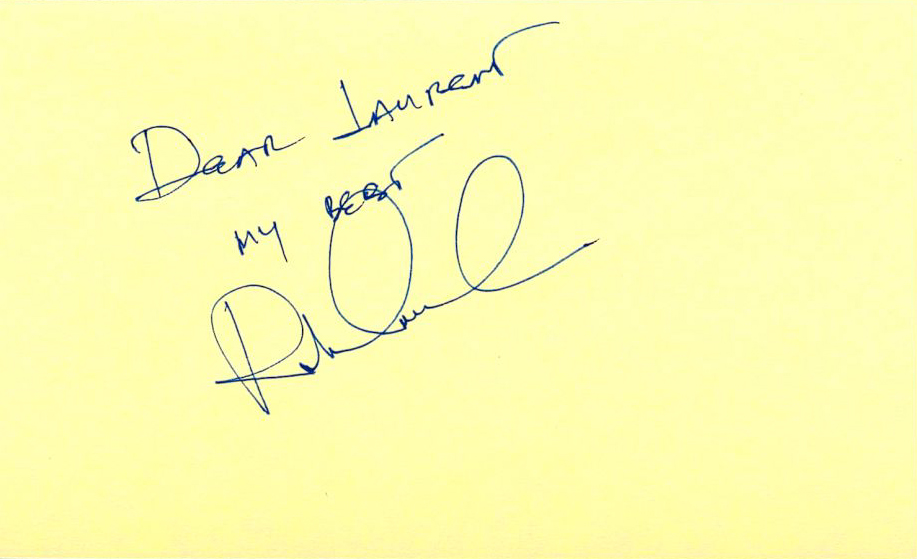 Dear Laurent
My Best